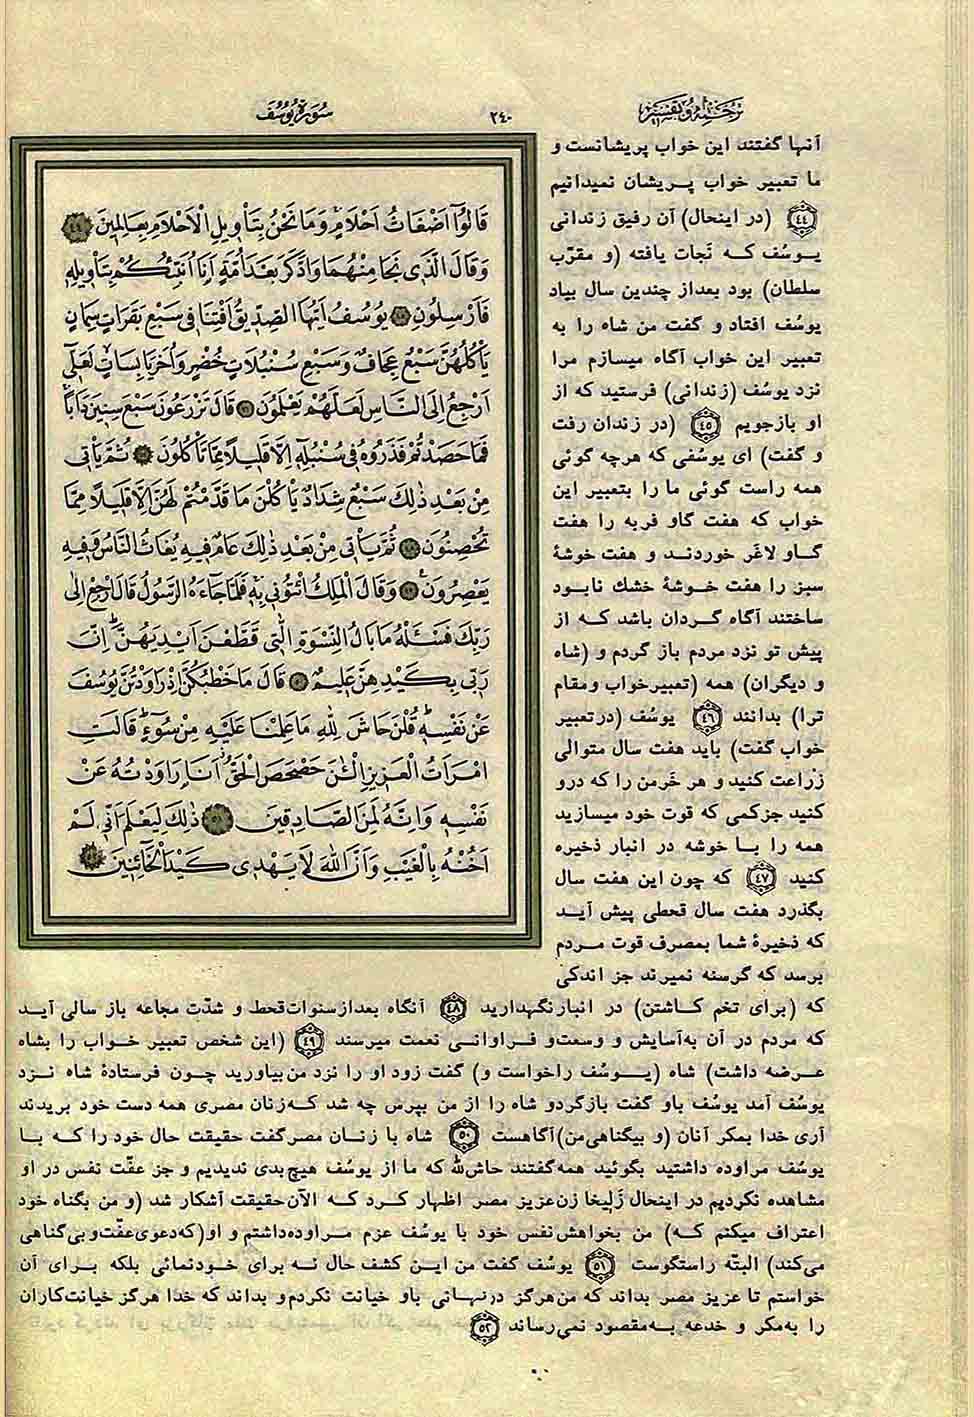 ترجمه و تفسیر
۲۴۰
سُورَةِ يُوسُفَ
قَالُوٓا اَضْغَاثُ اَحْلَامٍ وَمَا نَحْنُ بِتَأْوِيلِ الْاَحْلَامِ بِعَالِمِينَ ٤٤
وَقَالَ الَّذِي نَجَا مِنْهُمَا وَادَّكَرَ بَعْدَ اُمَّةٍ اَنَا اُنَبِّئُكُمْ بِتَأْوِيلِهِ
فَاَرْسِلُونِ ٤٥ يُوسُفُ اَيُّهَا الصِّدِّيقُ اَفْتِنَا فِي سَبْعِ بَقَرَاتٍ سِمَانٍ
يَأْكُلُهُنَّ سَبْعٌ عِجَافٌ وَسَبْعِ سُنْبُلَاتٍ خُضْرٍ وَاُخَرَ يَابِسَاتٍ لَعَلِّي
اَرْجِعُ اِلَى النَّاسِ لَعَلَّهُمْ يَعْلَمُونَ ٤٦ قَالَ تَزْرَعُونَ سَبْعَ سِنِينَ دَاَبًا
فَمَا حَصَدْتُمْ فَذَرُوهُ فِي سُنْبُلِهِ اِلَّا قَلِيلًا مِمَّا تَأْكُلُونَ ٤٧ ثُمَّ يَأْتِي
مِنْ بَعْدِ ذٰلِكَ سَبْعٌ شِدَادٌ يَأْكُلْنَ مَا قَدَّمْتُمْ لَهُنَّ اِلَّا قَلِيلًا مِمَّا
تُحْصِنُونَ ٤٨ ثُمَّ يَأْتِي مِنْ بَعْدِ ذٰلِكَ عَامٌ فِيهِ يُغَاثُ النَّاسُ وَفِيهِ
يَعْصِرُونَ ٤٩ وَقَالَ الْمَلِكُ ائْتُونِي بِهِ فَلَمَّا جَاءَهُ الرَّسُولُ قَالَ ارْجِعْ اِلٰى
رَبِّكَ فَسْئَلْهُ مَا بَالُ النِّسْوَةِ الّٰتِي قَطَّعْنَ اَيْدِيَهُنَّ اِنَّ
رَبِّي بِكَيْدِهِنَّ عَلِيمٌ ٥٠ قَالَ مَا خَطْبُكُنَّ اِذْ رَاوَدْتُنَّ يُوسُفَ
عَنْ نَفْسِهِ قُلْنَ حَاشَ لِلّٰهِ مَا عَلِمْنَا عَلَيْهِ مِنْ سُوٓءٍ قَالَتِ
امْرَاَتُ الْعَزِيزِ الْئٰنَ حَصْحَصَ الْحَقُّ اَنَا رَاوَدْتُهُ عَنْ
نَفْسِهِ وَاِنَّهُ لَمِنَ الصَّادِقِينَ ٥١ ذٰلِكَ لِيَعْلَمَ اَنِّي لَمْ
اَخُنْهُ بِالْغَيْبِ وَاَنَّ اللّٰهَ لَا يَهْدِي كَيْدَ الْخَائِنِينَ ٥٢
آنها گفتند این خواب پریشانست و
ما تعبیر خواب پریشان نمیدانیم
٤٤ (در اینحال) آن رفیق زندانی
یوسُف که نَجات یافته (و مقرّب
سلطان) بود بعداز چندین سال بیاد
یوسُف افتاد و گفت من شاه را به
تعبیر این خواب آگاه میسازم مرا
نزد یوسُف (زندانی) فرستید که از
او بازجویم ٤٥ (در زندان رفت
و گفت) ای یوسُفی که هرچه گوئی
همه راست گوئی ما را بتعبیر این
خواب که هفت گاو فربه را هفت
گاو لاغَر خوردند و هفت خوشهٔ
سبز را هفت خوشهٔ خشك نابود
ساختند آگاه گردان باشد که از
پیش تو نزد مردم باز گردم و (شاه
و دیگران) همه (تعبیرخواب ومقام
ترا) بدانند ٤٦ یوسُف (درتعبیر
خواب گفت) باید هفت سال متوالی
زراعت کنید و هر خَرمن را که درو
کنید جزکمی که قوت خود میسازید
همه را با خوشه در انبار ذخیره
کنید ٤٧ که چون این هفت سال
بگذرد هفت سال قحطی پیش آید
که ذخیرهٔ شما بمصرف قوت مردم
برسد که گرسنه نمیرند جز اندکی
که (برای تخم کاشتن) در انبارنگهدارید ٤٨ آنگاه بعدازسنوات‌قحط و شدّت مجاعه باز سالی آید
که مردم در آن به‌آسایش و وسعت‌و فراوانی نعمت میرسند ٤٩ (این شخص تعبیر خواب را بشاه
عرضه داشت) شاه (یوسُف راخواست و) گفت زود او را نزد من‌بیاورید چون فرستادهٔ شاه نزد
یوسُف آمد یوسُف باو گفت بازگردو شاه را از من بپرس چه شد که‌زنان مصری همه دست خود بریدند
آری خدا بمکر آنان (و بیگناهی‌من)آگاهست ٥٠ شاه با زنان مصرگفت حقیقت حال خود را که با
یوسُف مراوده داشتید بگوئید همه‌گفتند حاش‌لله که ما از یوسُف هیچ‌بدی ندیدیم و جز عفّت نفس در او
مشاهده نکردیم در اینحال زَلِیخا زن‌عزیز مصر اظهار کرد که الآن‌حقیقت آشکار شد (و من بگناه خود
اعتراف میکنم که) من بخواهش‌نفس خود با یوسُف عزم مراوده‌داشتم و او(که‌دعوی‌عفّت‌و‌بی‌گناهی
می‌کند) البتّه راستگوست ٥١ یوسُف گفت من این کشف حال نه برای خودنمائی بلکه برای آن
خواستم تا عزیز مصر بداند که من‌هرگز درنهانی باو خیانت نکردم‌و بداند که خدا هرگز خیانت‌کاران
را به‌مکر و خدعه به‌مقصود نمی‌رساند ٥٢